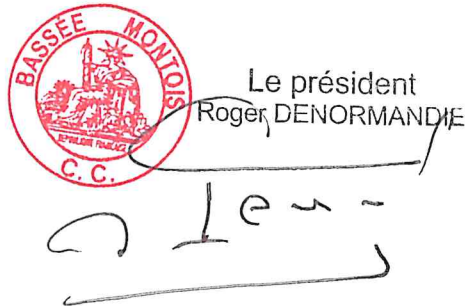 BASSÉE MONTOIS
C. C.
RÉPUBLIQUE FRANÇAISE
Le président
Roger DENORMANDIE